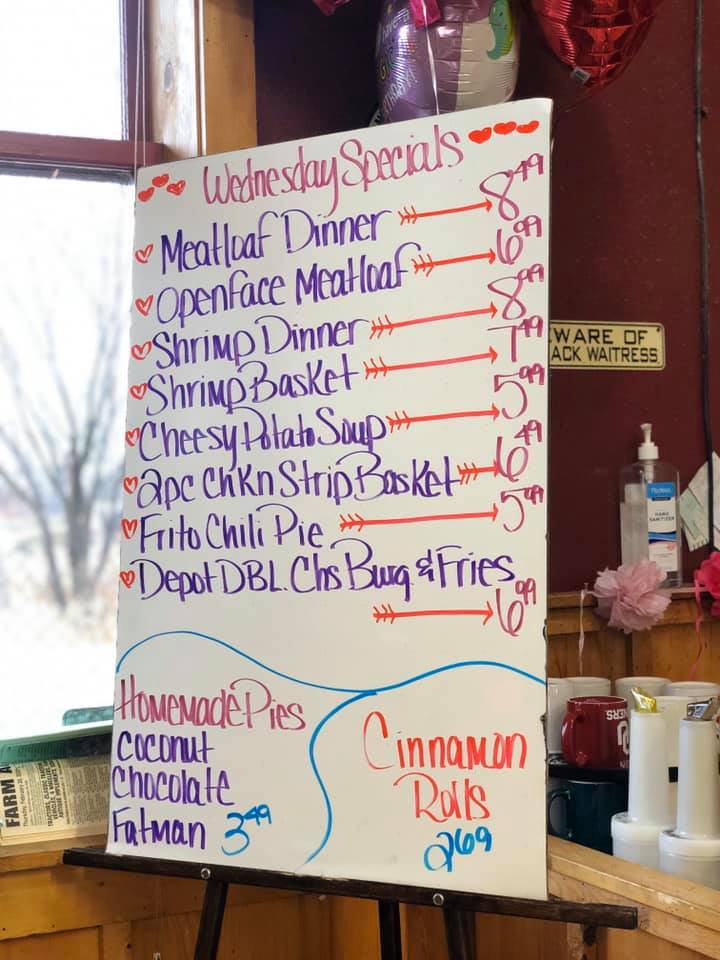 Wednesday Specials
Meatloaf Dinner 8.49
Openface Meatloaf 6.99
Shrimp Dinner 8.99
Shrimp Basket 7.49
Cheesy Potato Soup 5.99
2pc Chkn Strip Basket 6.49
Frito Chili Pie 5.49
Depot DBL. Chs Burg. & Fries
6.99
Homemade Pies
Coconut
Chocolate
Fatman 3.49
Cinnamon
Rolls
2.69
WARE OF
ACK WAITRESS
HAND
SANITIZER
FARM A
NERS